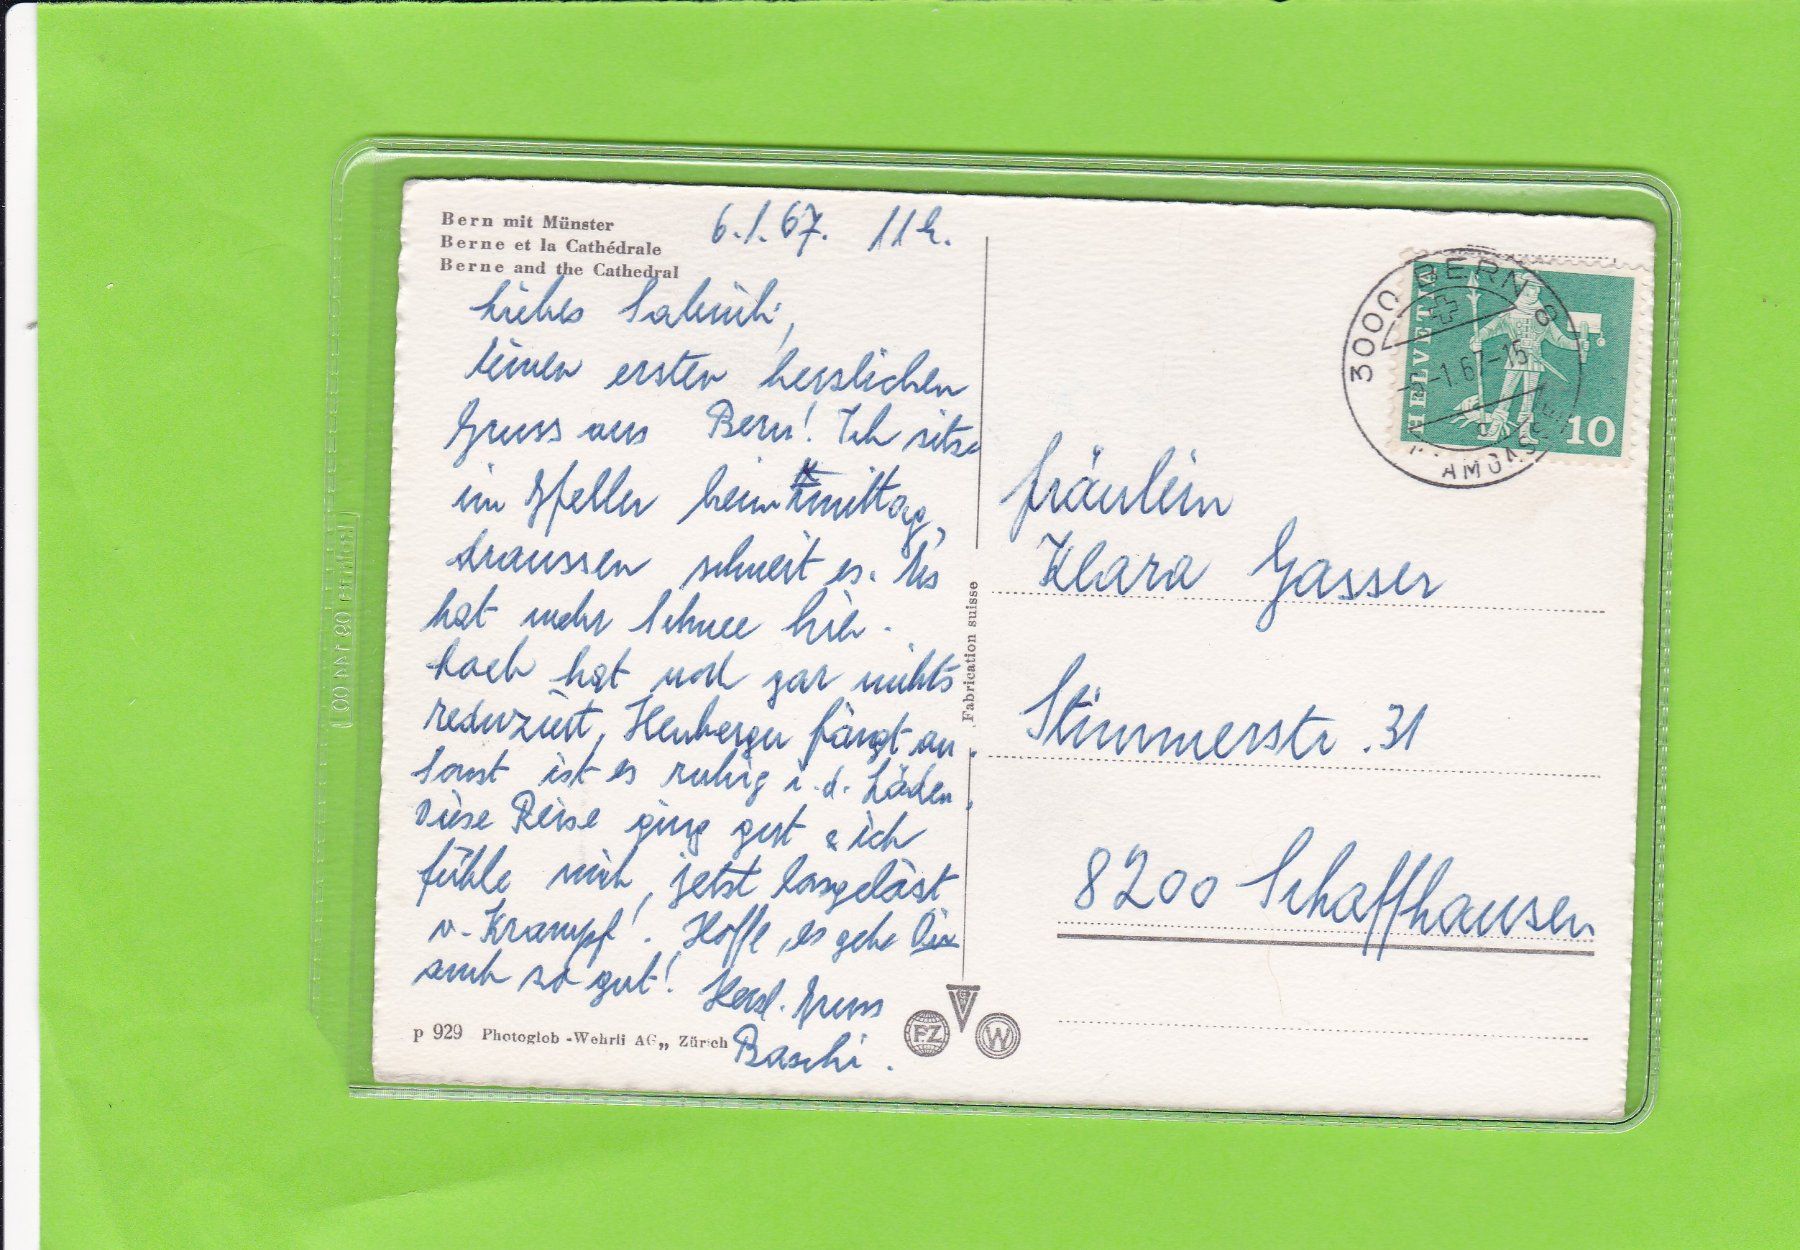 Bern mit Münster
Berne et la Cathédrale
Berne and the Cathedral
6.1.67. 11 h.
Liebes
einen ersten herzlichen
Gruss aus Bern! Ich sitze
im Gfeller beim Zmittag,
draussen schneit es. Es
hat mehr Schnee hier.
Loeb hat noch gar nichts
reduziert, Heuberger fängt an.
Sonst ist es ruhig i. d. Läden.
Diese Reise ging gut & ich
fühle mich, jetzt losgelöst
v. Krampf! Hoffe, es gehe Dir
auch so gut! Herzl. Gruss
Baschi.
p 929 Photoglob-Wehrli AG,, Zürich
Fabrication suisse
PZ
W
3000 BERN 8
-1.67-15
HELVETIA
10
Fräulein
Klara Gasser
Stimmerstr. 31
8200 Schaffhausen